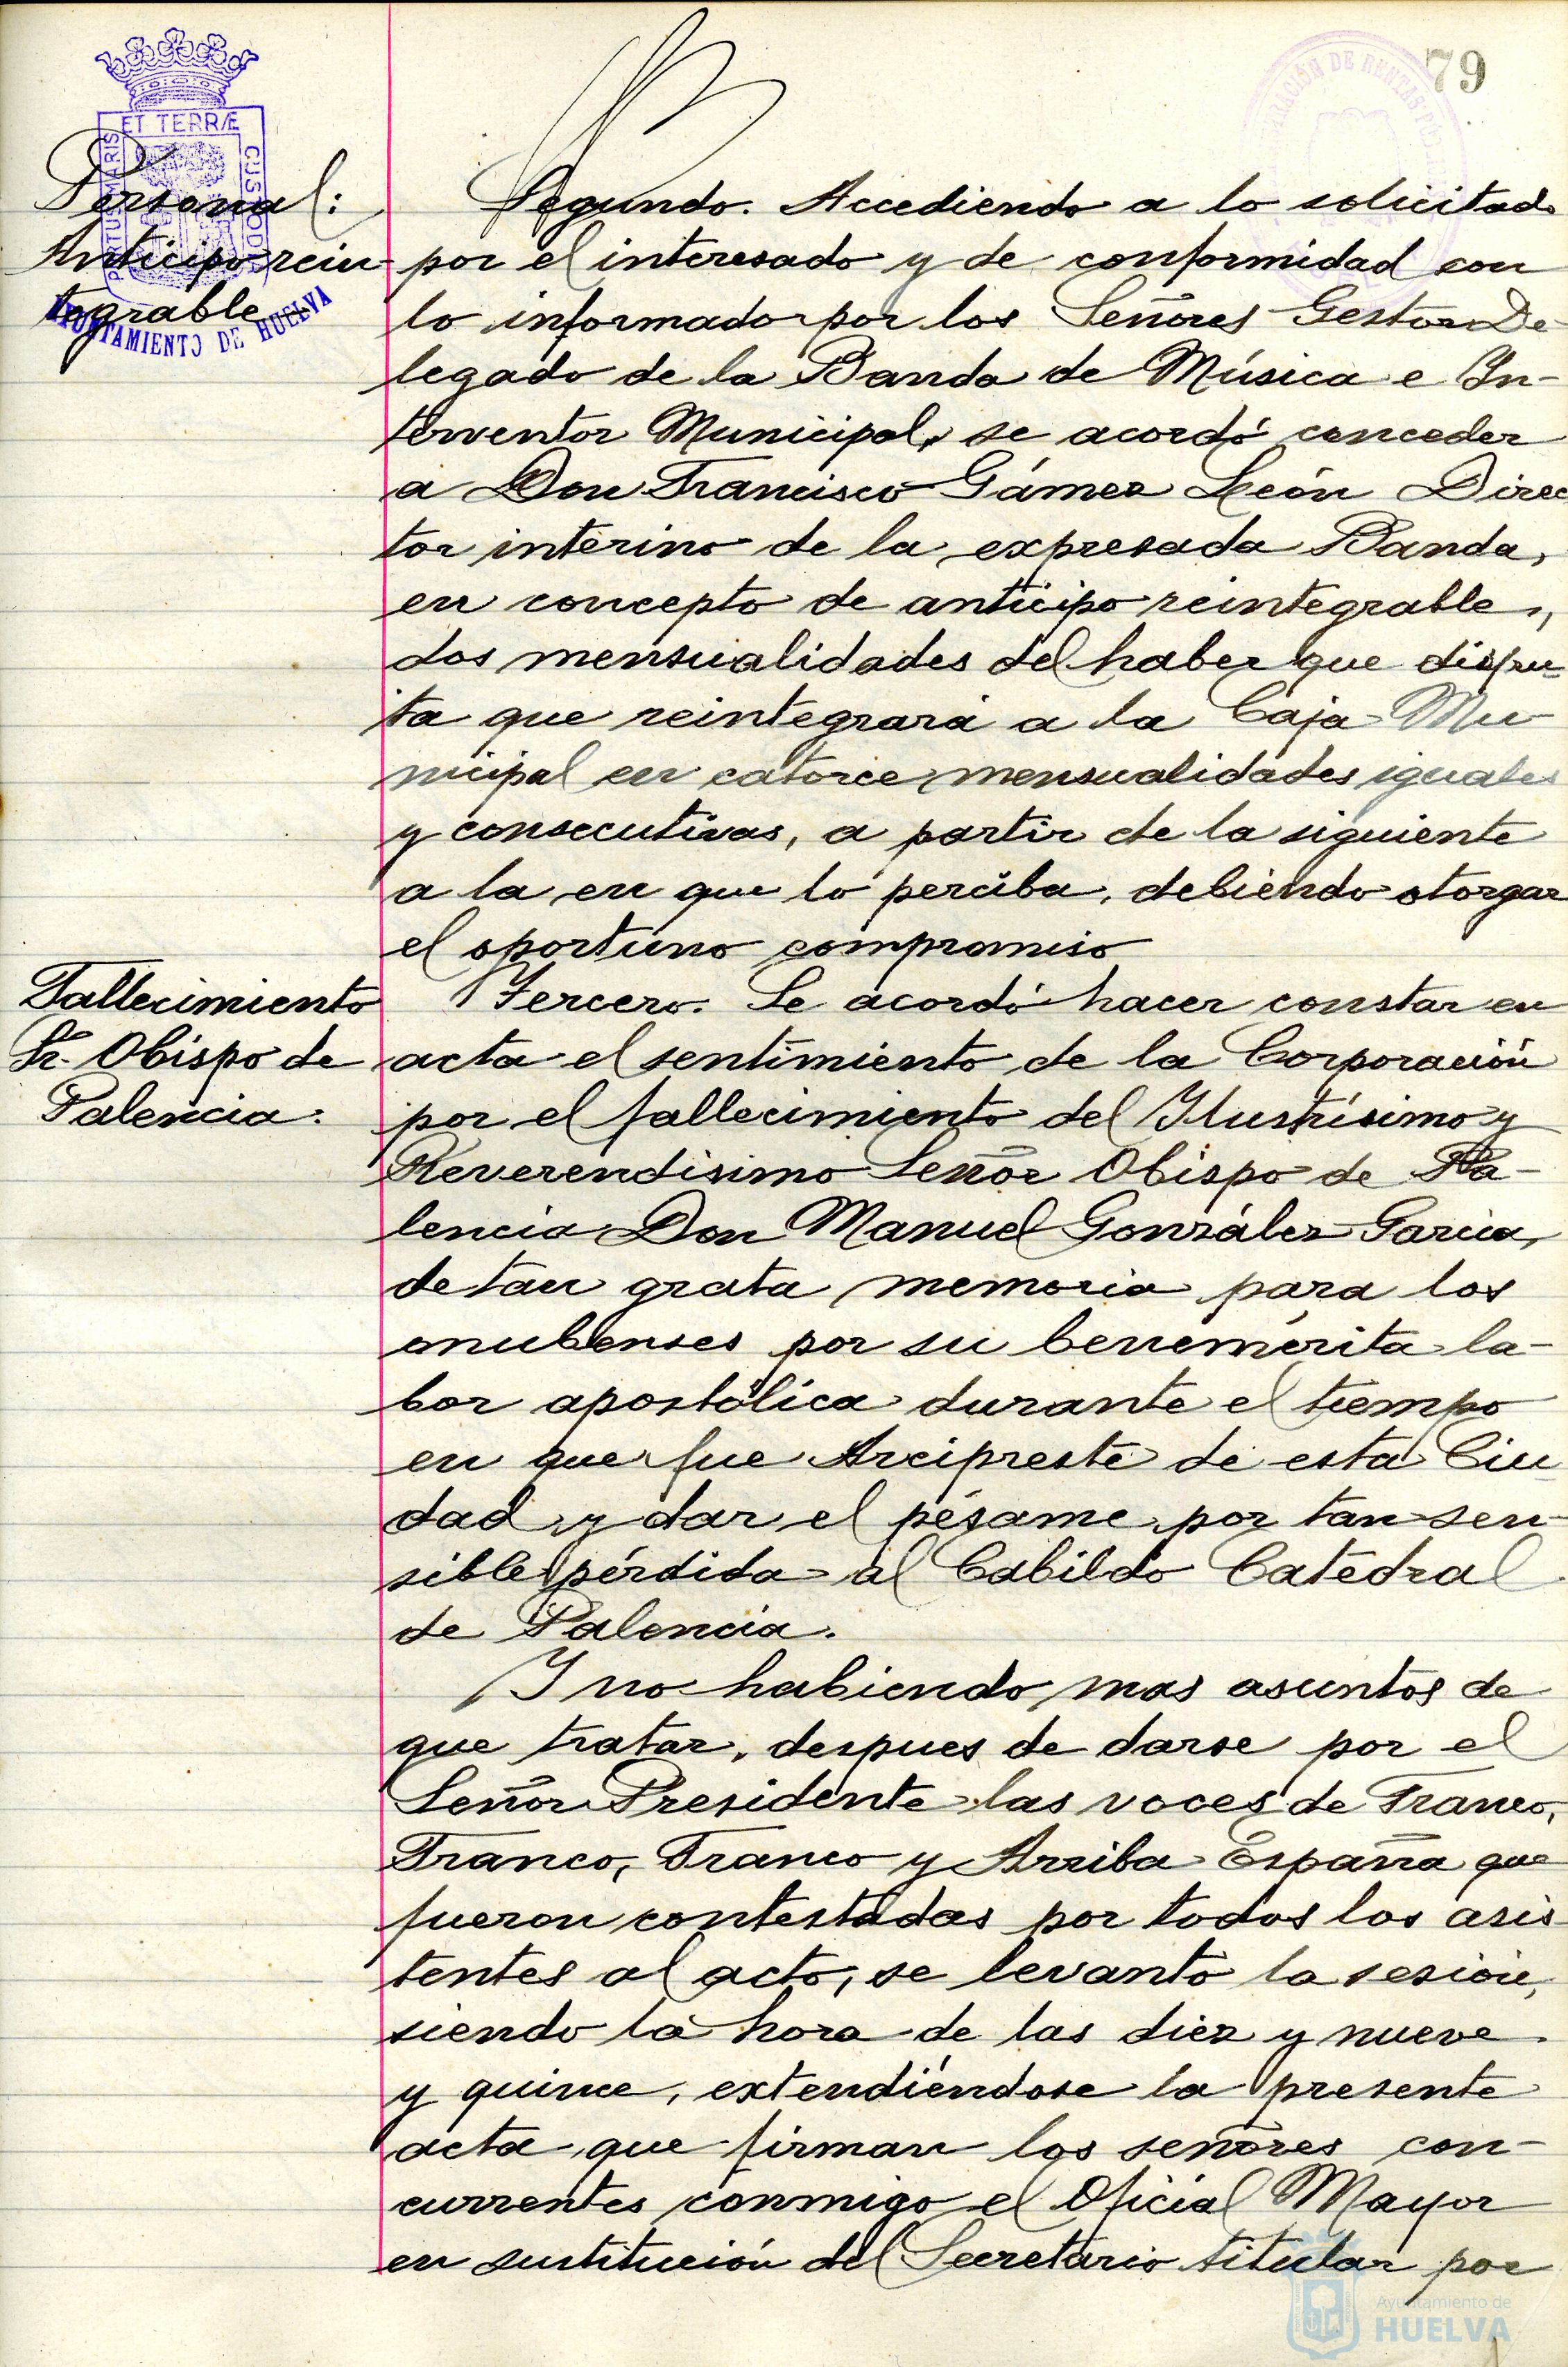 79
ET TERRÆ
PORTUS MARIS
CUSTODIA
AYUNTAMIENTO DE HUELVA
Personal:
Anticipo rein
tegrable
Segundo. Accediendo a lo solicitado
por el interesado y de conformidad con
lo informado por los Señores Gestor De
legado de la Banda de Música e In-
terventor Municipal, se acordó conceder
a Don Francisco Gámez León Direc
tor interino de la expresada Banda,
en concepto de anticipo reintegrable,
dos mensualidades del haber que disfru-
ta que reintegrará a la Caja Mu-
nicipal en catorce mensualidades iguales
y consecutivas, a partir de la siguiente
a la en que lo perciba, debiendo otorgar
el oportuno compromiso
Fallecimiento
Sr. Obispo de
Palencia.
Tercero. Se acordó hacer constar en
acta el sentimiento de la Corporación
por el fallecimiento del Ilustrísimo y
Reverendisimo Señor Obispo de Pa-
lencia Don Manuel González García,
de tan grata memoria para los
onubenses por su benemérita la-
bor apostólica durante el tiempo
en que fue Arcipreste de esta Ciu
dad y dar el pésame por tan sen-
sible pérdida al Cabildo Catedral
de Palencia.
Y no habiendo mas asuntos de
que tratar, despues de darse por el
Señor Presidente las voces de Franco,
Franco, Franco y Arriba España que
fueron contestadas por todos los asis
tentes al acto, se levantó la sesión,
siendo la hora de las diez y nueve
y quince, extendiéndose la presente
acta que firman los señores con-
currentes conmigo el Oficial Mayor
en sustitución del Secretario titular por
Ayuntamiento de
HUELVA